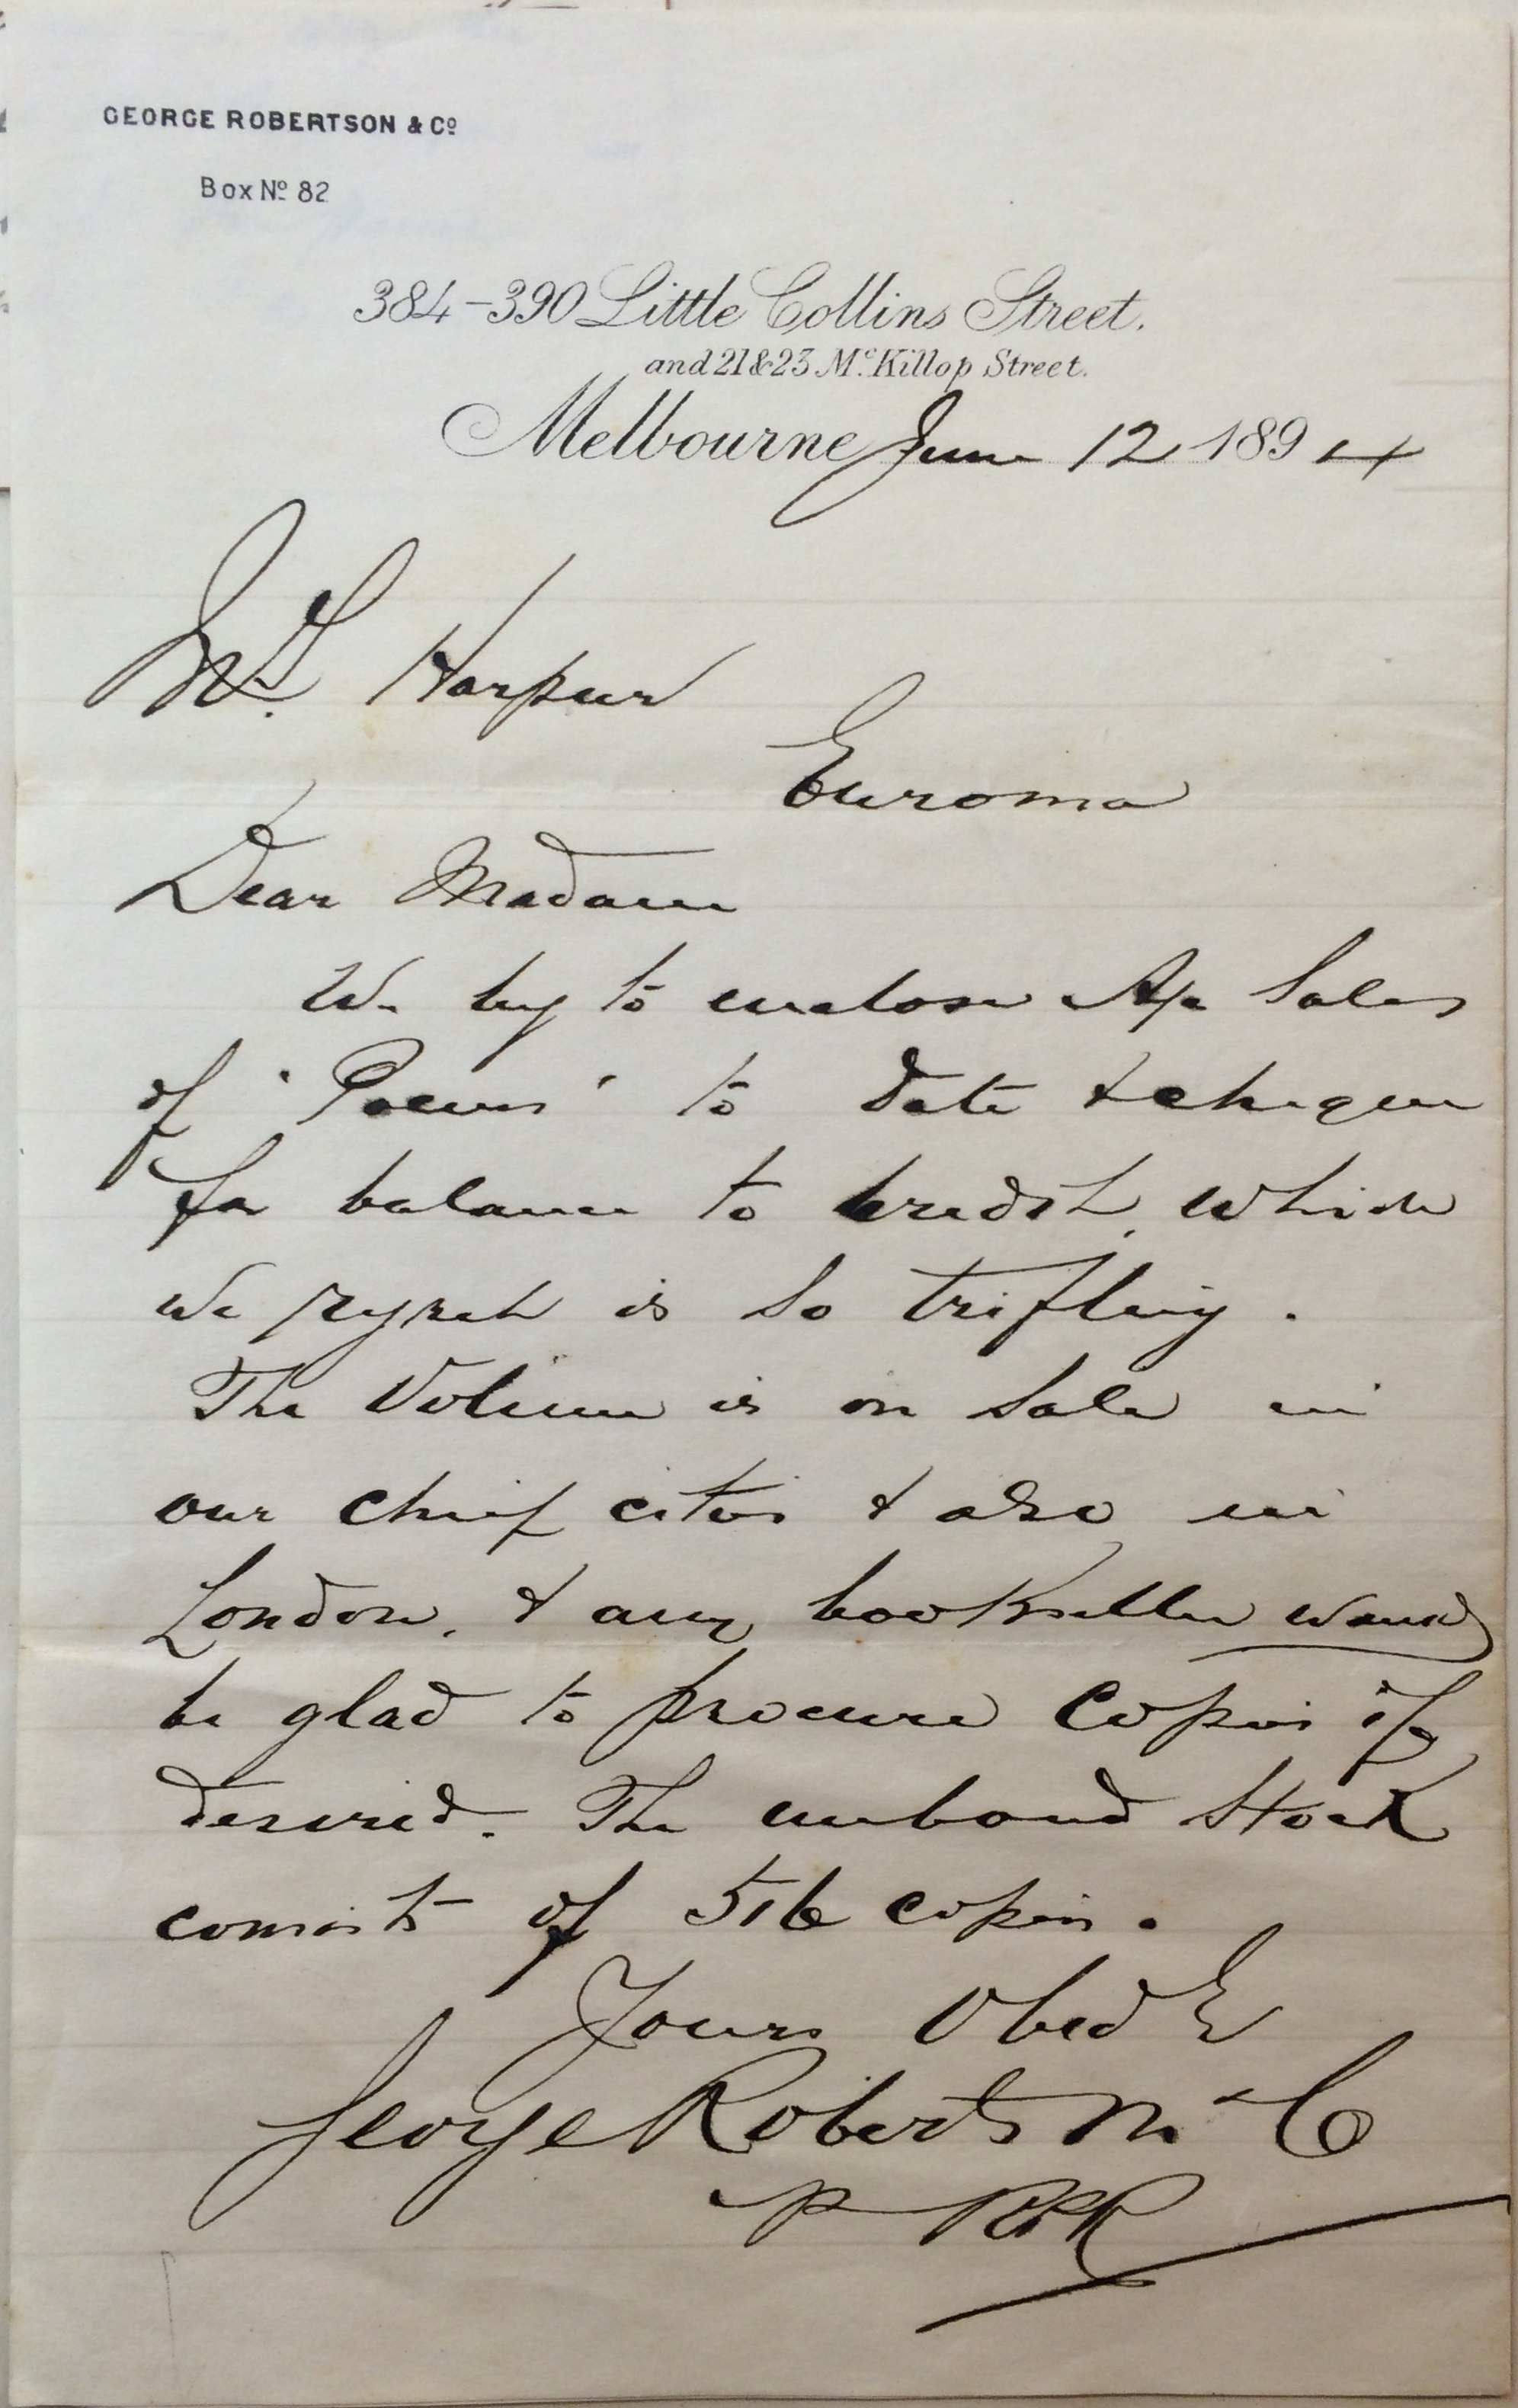 GEORGE ROBERTSON & Cº
Box Nº 82
384-390 Little Collins Street.
and 21 & 23 Mc.Killop Street.
Melbourne June 12 1894
Mrs. Harpur
Euroma
Dear Madam
We beg to enclose A/c Sales
of 'Poems' to date & cheque
for balance to credit, which
we regret is so trifling.
The Volume is on Sale in
our chief cities & also in
London, & any bookseller would
be glad to procure copies if
desired. The unbound Stock
consists of 516 copies.
Yours Obed
George Robertson & Co
p